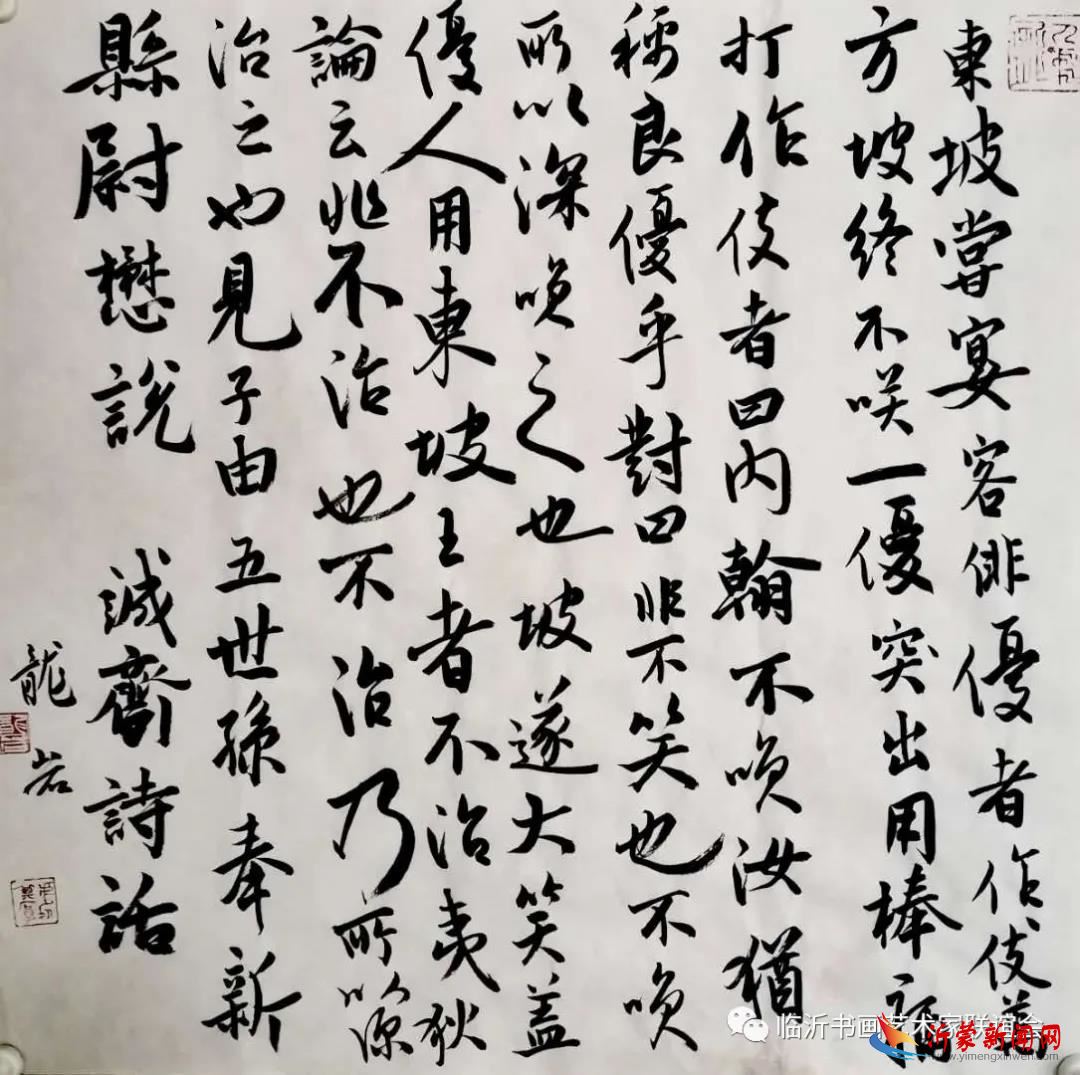 東坡嘗宴客俳優者作伎萬
方坡終不咲一優突出用棒痛
打作伎者曰内翰不咲汝猶
稱良優乎對曰非不笑也不咲
所以深咲之也坡遂大笑蓋
優人用東坡王者不治夷狄
論云非不治也不治乃所以深
治之也見子由五世孫奉新
縣尉懋說 誠齋詩話
龍岩
临沂书画艺术家联谊会
沂蒙新闻网
www.yimengxinwen.com